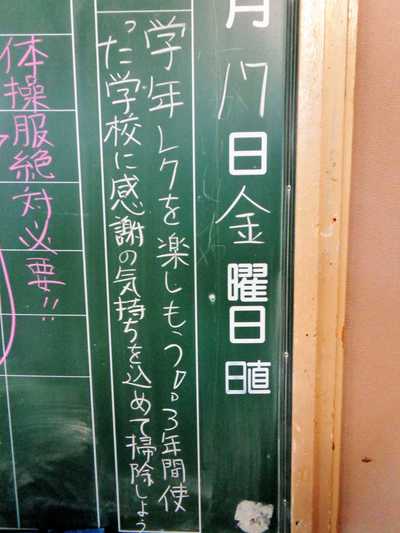 月17日金曜日 日直
学年レクを楽しもう♪。3年間使
った学校に感謝の気持ちを込めて掃除しよう
体操服絶対必要!!